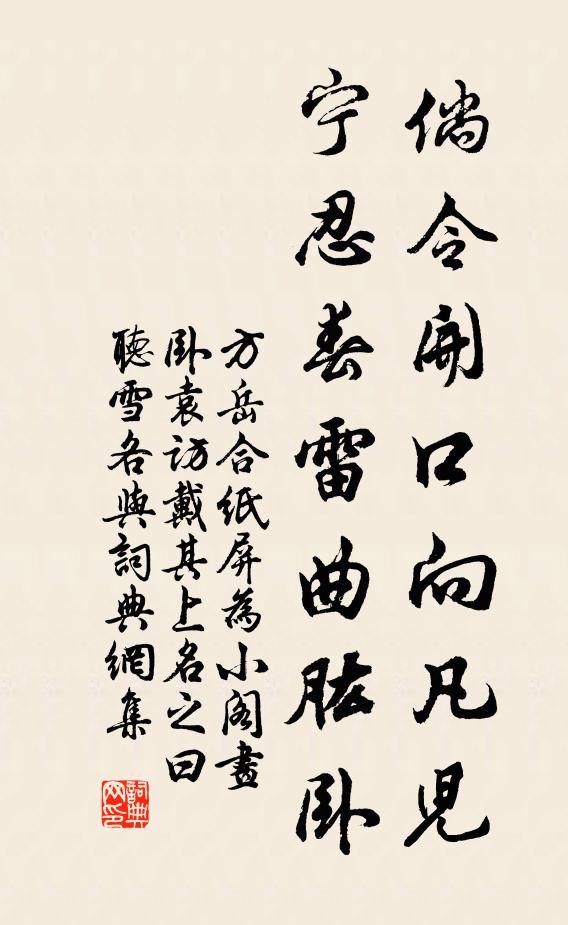 倘令開口向凡児
宁忍春雷曲肱卧
方岳合紙屏為小閣畫
卧袁訪戴其上名之曰
聽雪各與詞典網集
詞典网印